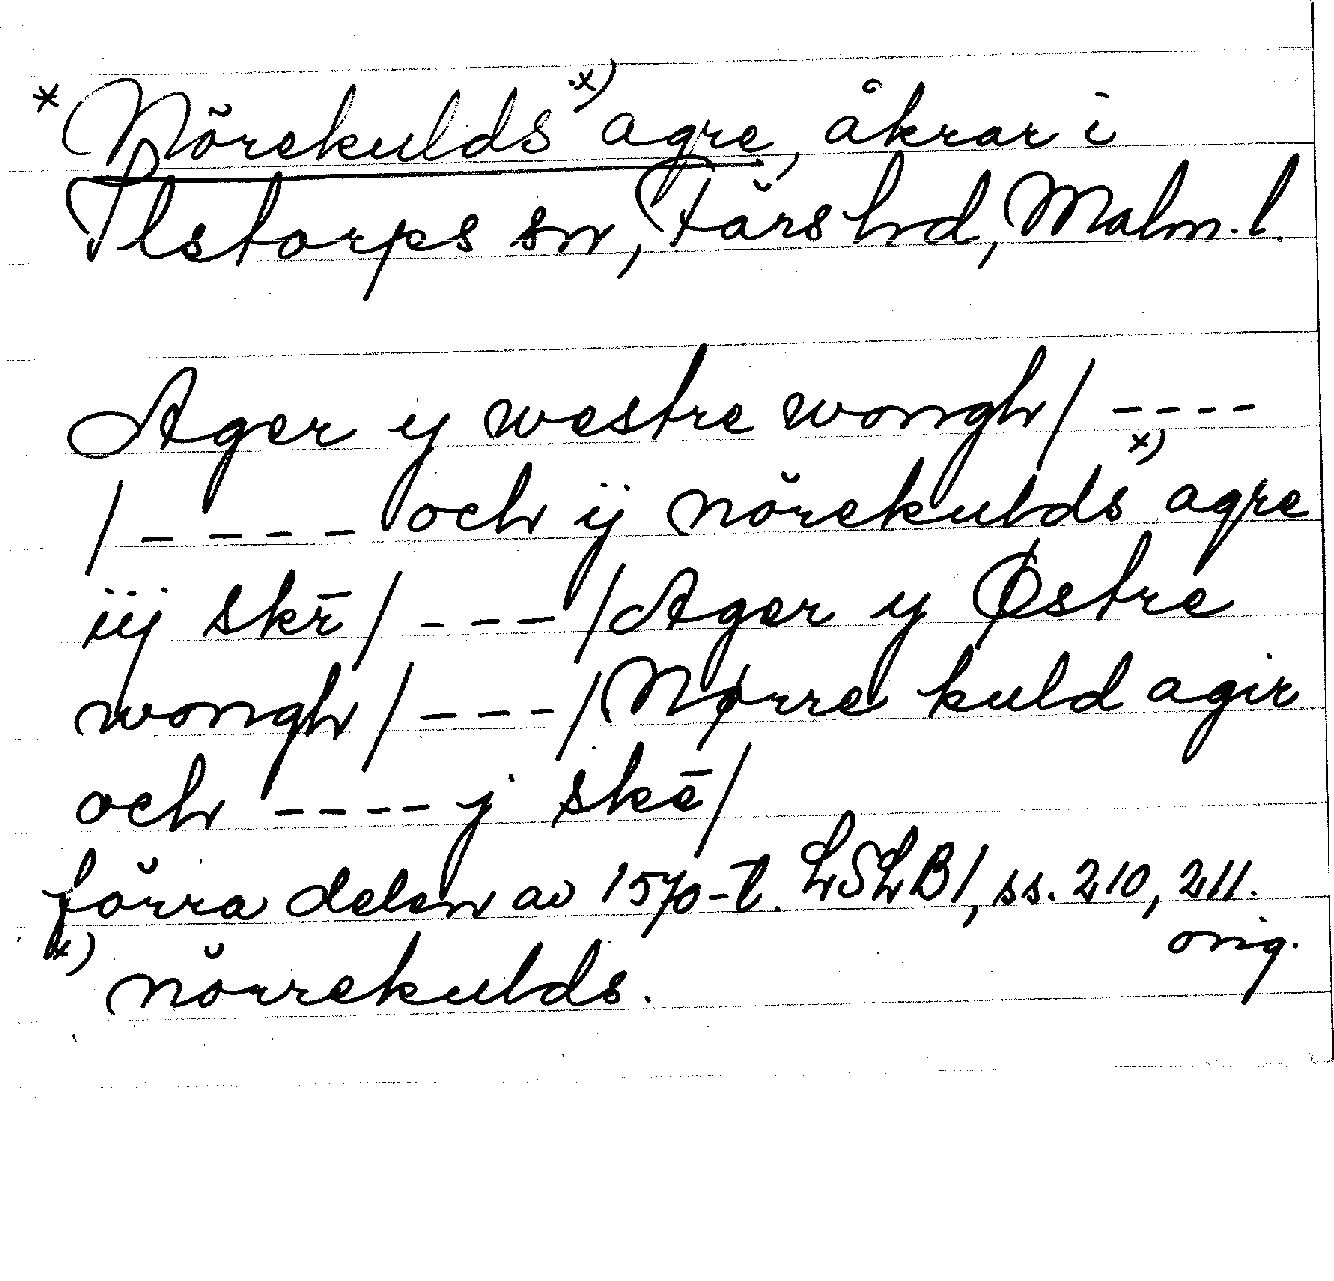 * Nörekulds x) agre, åkrar i
Ilstorps sn, Färs hd, Malm. l.
Ager y westre wongh / ----
/ ---- och ij nörekulds x) agre
iij skē / --- / Ager y Østre
wongh / --- / Nørre kuld agir
och ---- j skē /
förra delen av 1570-t. LSLB1, ss. 210, 211.
orig.
x) nörrekulds.